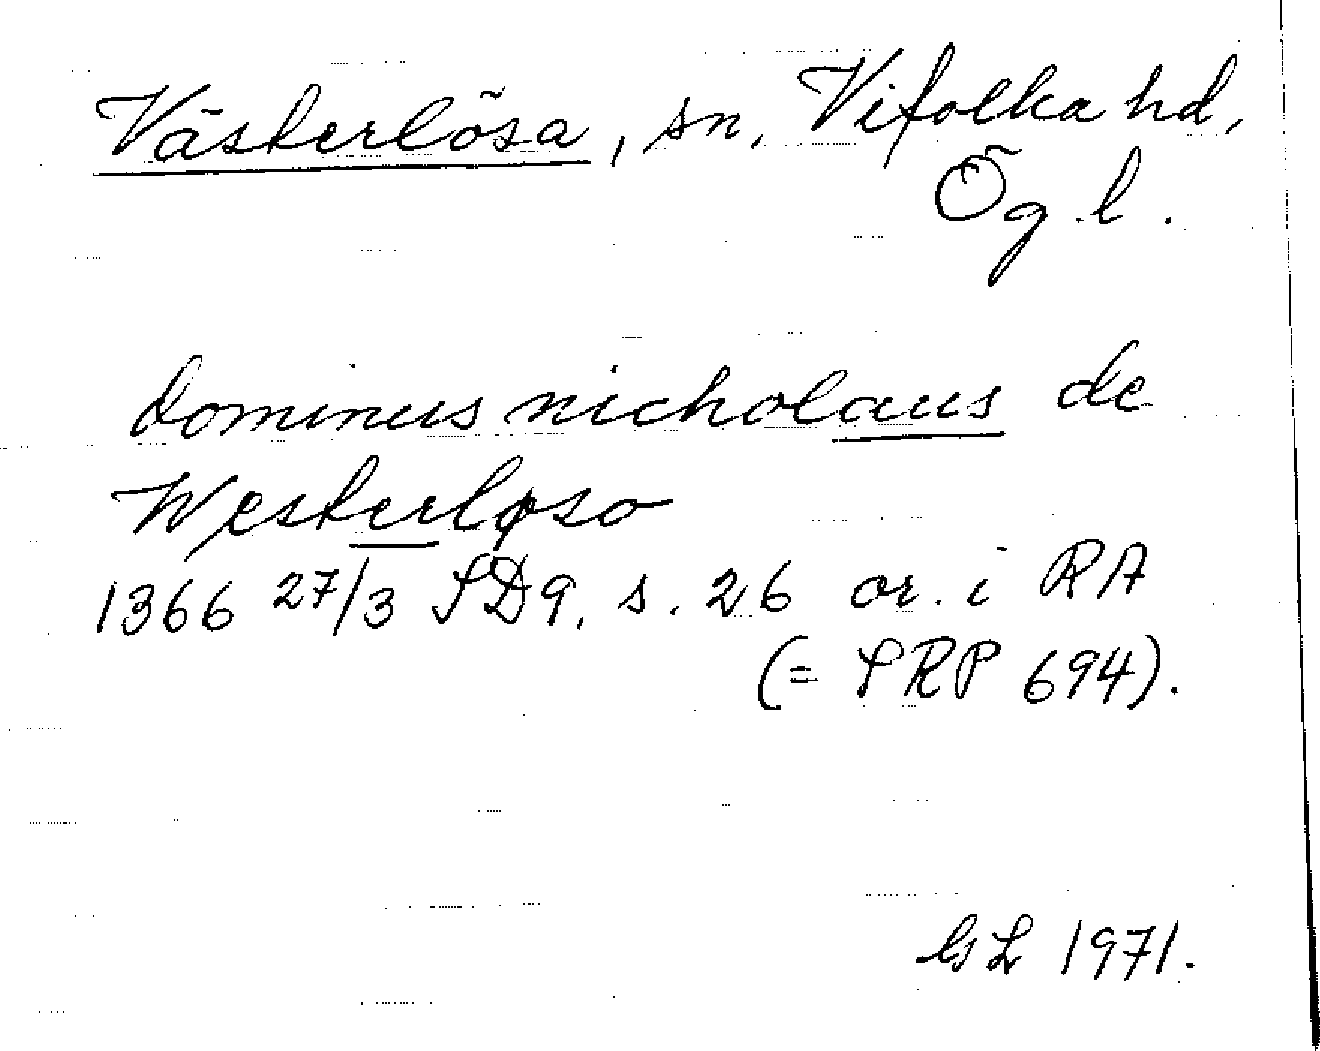 Västerlösa, sn, Vifolka hd,
Ög. l.
dominus nicholaus de
Westerløso
1366 27/3 SD9, s. 26 or. i RA
(= SRP 694).
GL 1971.